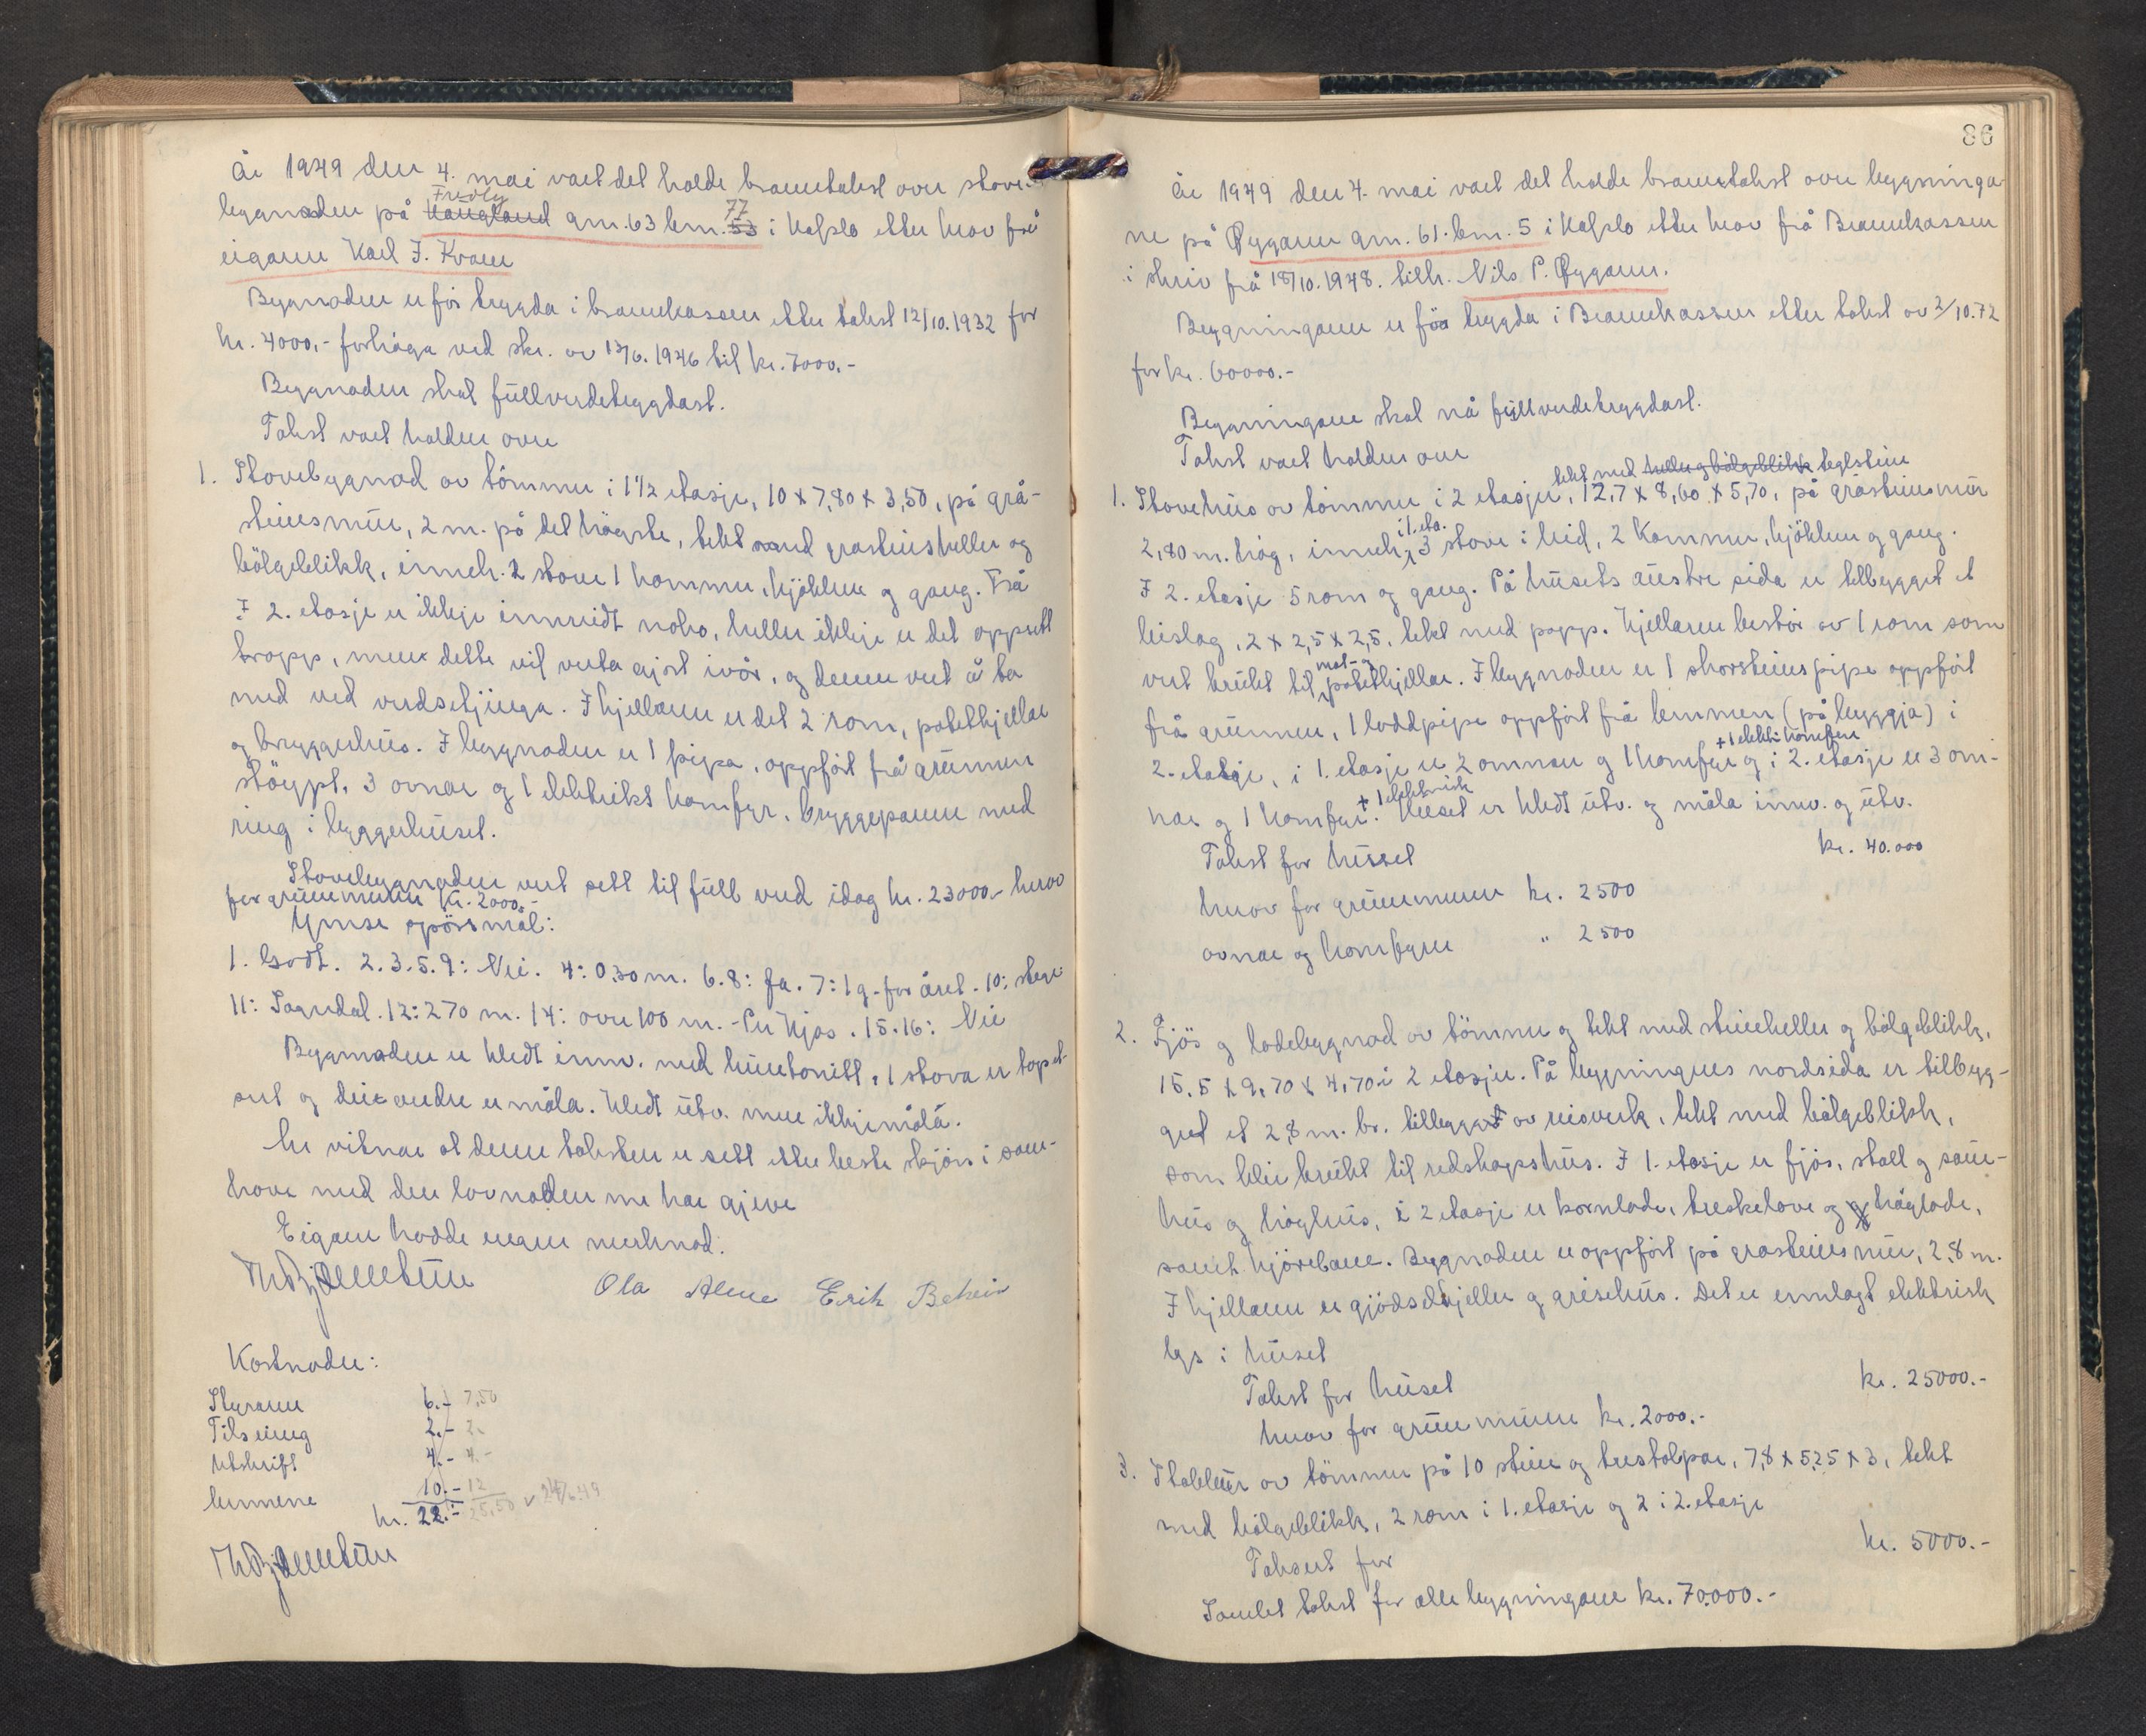 År 1949 den 4. mai vart det halde branntakst over stove-
Fredly 77
bygnaden på Haugland gnr. 63 bnr. 53 i Hafslo etter krav frå
eigaren Karl J. Kvam
Bygnaden er før trygda i brannkassen etter takst 12/10.1932 for
kr. 4000,- forhøga ved skr. av 13/6. 1946 til kr. 7000.-
Bygnaden skal fullverdetrygdast.
Takst vart halden over
1. Stovebygnad av tømmer i 1 1/2 etasje, 10 x 7,80 x 3,50, på grå-
steinsmur, 2 m. på det høgste, tekt med grasteinsheller og
bölgeblikk, inneh. 2 stover 1 kammer, kjøkken og gang. Frå
I 2. etasje er ikkje innreidt noko, heller ikkje er det oppsett
tropp, men dette vil verta gjort i vår, og denne vert å ta
med ved verdsetjinga. I kjellaren er det 2 rom, potetkjellar
og bryggerhus. I bygnaden er 1 pipa, oppført frå grunnen
støypt, 3 ovnar og 1 elektrikt komfyr, bryggepanne med
ring i bryggerhuset.
Stovebygnaden vert sett til full verd idag kr. 23000.- herav
for grunnmuren kr. 2000.-
Ymse spörsmål:
1. Godt. 2.3.5.9: Nei. 4: 0.30 m. 6.8: Ja. 7: 1 g. for året. 10: stege
11: Sogndal. 12: 270 m. 14: over 100 m. - Per Kjos. 15.16: Nei
Bygnaden er kledt innv. med huntonitt, 1 stova er tapet-
sert og dei andre er måla. Kledt utv. men ikkje måla.
Me vitnar at denne taksten er sett etter beste skjøn i sam-
have med den lovnaden me har gjeve
Eigaren hadde ingen merknad.
Ola Alme Erik Beheim
Kostnader:
Styraren 6.- 7,50
Tilseing 2.- 2.
Utskrift 4.- 4.-
Mennene 10.- 12
kr. 22.- 25,50 v 24/6.49
86
År 1949 den 4. mai vart det halde branntakst over bygninga-
ne på Øygaren gnr. 61. bnr. 5 i Hafslo etter krav frå Brannkassen
i skriv frå 18/10. 1948. tilh. Nils P. Øygaren.
Bygningane er før trygda i Brannkassen etter takst av 2/10.42
for kr. 60000.-
Bygningane skal nå fullverdetrygdast.
Takst vart halden over
tekt med heller og bölgeblikk teglstein
1. Stovehus av tømmer i 2 etasjer, 12,7 x 8,60 x 5,70, på gråsteinsmur
i 1. eta.
2,80 m. høg, inneh. 3 stover i heid, 2 kammer, kjøkken og gang.
I 2. etasje 5 rom og gang. På husets austre sida er tilbygget et
bislag, 2 x 2,5 x 2,5, tekt med papp. Kjellaren består av 1 rom som
mat- og
vert brukt til potetkjellar. I bygnaden er 1 skorsteinspipe oppført
frå grunnen, 1 loddpipe oppført frå lemmen (på byggja) i
+ 1 elektr. komfyr
2. etasje, i 1. etasje er 2 omnar og 1 komfyr og i 2. etasje er 3 om-
+ 1 elektrisk
nar og 1 komfyr. Huset er kledt utv. og måla innv. og utv.
Takst for huset kr. 40.000
herav for grunnmuren kr. 2500
ovnar og komfyrer " 2500
2. Fjøs og ladebygnad av tömmer og tekt med steinheller og bölgeblikk,
15,5 x 9,70 x 4,70 i 2 etasjer. På bygningens nordsida er tilbyg-
get et 2,8 m. br. tilbygg av reisverk, tekt med bölgeblikk,
som blir brukt til redskapshus. I 1. etasje er fjøs, stall og saue-
hus og høyhus, i 2 etasje er kornlade, treskelove og høylade,
samt kjörebane. Bygnaden er oppført på grasteinsmur, 2,8 m.
I kjellaren er gjødselkjeller og grisehus. Det er innlagt elektrisk
lys i huset
Takst for huset kr. 25000.-
herav for grunnmuren kr. 2000.-
3. Stabbur av tömmer på 10 stein og trestolpar, 7,8 x 5,25 x 3, tekt
med bölgeblikk, 2 rom i 1. etasje og 2 i 2. etasje
Taksert for kr. 5000.-
Samlet takst for alle bygningane kr. 70.000.-